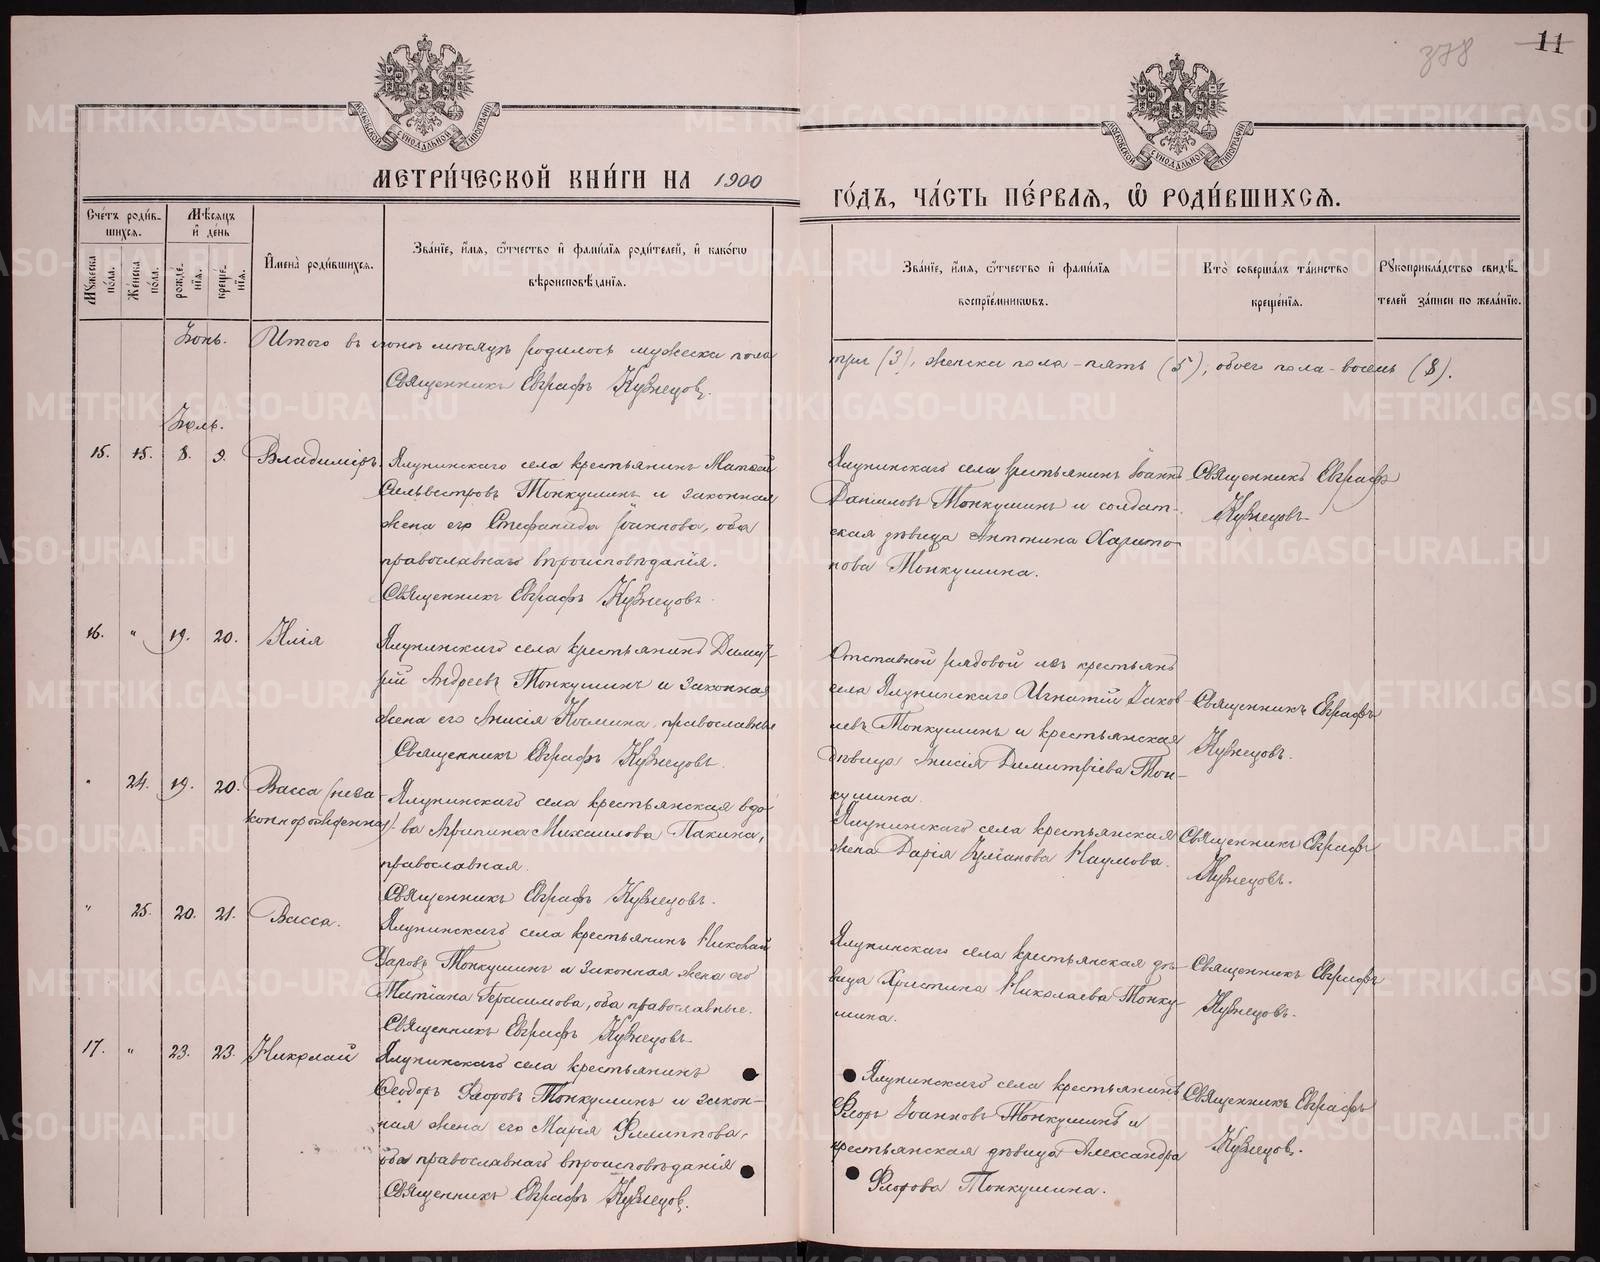 378
11
МОСКОВСКОЙ СѴНОДАЛЬНОЙ ТИПОГРАФІИ
МОСКОВСКОЙ СѴНОДАЛЬНОЙ ТИПОГРАФІИ
МЕТРИ́ЧЕСКОЙ КНИ́ГИ НА 1900
ГО́ДЪ, ЧА́СТЬ ПЕ́РВАЯ, Ѽ РОДИ́ВШИХСЯ.
Сче́тъ роди́в-
шихся.
Мѣ́сяцъ
и҆ де́нь
Мꙋ́жеска
по́ла.
Же́нска
по́ла.
рожде-
нїѧ.
креще-
нїѧ.
И҆мена̀ роди́вшихся.
Зва́нїе, и҆́мя, ѻ҆́тчество и҆ фами́лїя роди́телей, и҆ како́гѡ
вѣроисповѣ́данїя.
Зва́нїе, и҆́мя, ѻ҆́тчество и҆ фами́лїя
воспрїе́мникѡвъ.
Кто̀ соверша́лъ та́инство
креще́нїя.
Рꙋкоприкла́дство свидѣ́-
телей за́писи по жела́нїю.
Іюнь. Итого въ іюнѣ мѣсяцѣ родилось мужеска пола
три (3), женска пола - пять (5), обоего пола - восемь (8).
Священникъ Евграфъ Кузнецовъ.
Іюль.
15. 15. 8. 9. Владиміръ.
Ялунинскаго села крестьянинъ Матвей
Сильвестровъ Тонкушинъ и законная
жена его Стефанида Іоаннова, оба
православнаго вѣроисповѣданія.
Священникъ Евграфъ Кузнецовъ.
Ялунинскаго села крестьянинъ Іоаннъ
Даниловъ Тонкушинъ и солдат-
ская дѣвица Антонина Харито-
нова Тонкушина.
Священникъ Евграфъ
Кузнецовъ
16. " 19. 20. Илія
Ялунинскаго села крестьянинъ Димит-
рій Андреевъ Тонкушинъ и законная
жена его Анисія Космина, православные
Священникъ Евграфъ Кузнецовъ.
Отставной рядовой изъ крестьянъ
села Ялунинскаго Игнатій Іаков
левъ Тонкушинъ и крестьянская
дѣвица Анисія Димитріева Тон-
кушина.
Священникъ Евграфъ
Кузнецовъ.
" 24. 19. 20. Васса (неза-
коннорожденная)
Ялунинскаго села крестьянская вдо-
ва Агрипина Михаилова Пакина,
православная.
Священникъ Евграфъ Кузнецовъ.
Ялунинскаго села крестьянская
жена Дарія Іуліанова Наумова.
Священникъ Евграфъ
Кузнецовъ.
" 25. 20. 21. Васса.
Ялунинскаго села крестьянинъ Николай
Уаровъ Тонкушинъ и законная жена его
Татіана Герасимова, оба православные.
Священникъ Евграфъ Кузнецовъ
Ялунинскаго села крестьянская дѣ-
вица Христина Николаева Тонку-
шина.
Священникъ Евграфъ
Кузнецовъ.
17. " 23. 23. Николай
Ялунинскаго села крестьянинъ
Ѳеодоръ Флоровъ Тонкушинъ и закон-
ная жена его Марія Филиппова,
оба православнаго вѣроисповѣданія
Священникъ Евграфъ Кузнецовъ.
Ялунинскаго села крестьянинъ
Флоръ Іоанновъ Тонкушинъ и
крестьянская дѣвица Александра
Флорова Тонкушина.
Священникъ Евграфъ
Кузнецовъ.
METRIKI.GASO-URAL.RU